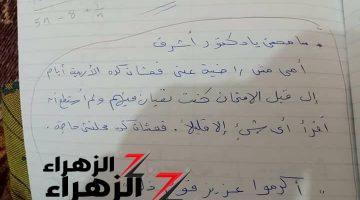 5n - 8 + 1/n
ما معي يا دكتور أشرف
أمي مش راضية عني فتشات كده الأربعة أيام
إلى قبل الامتحان كنت تعبان فيهم ولم أستطع أن
أقرأ أي شيء إلا قليلاً. فتشات كده مجلتش حاجة.
أكرموا عزيز قوم
الزهراء
الزهراء